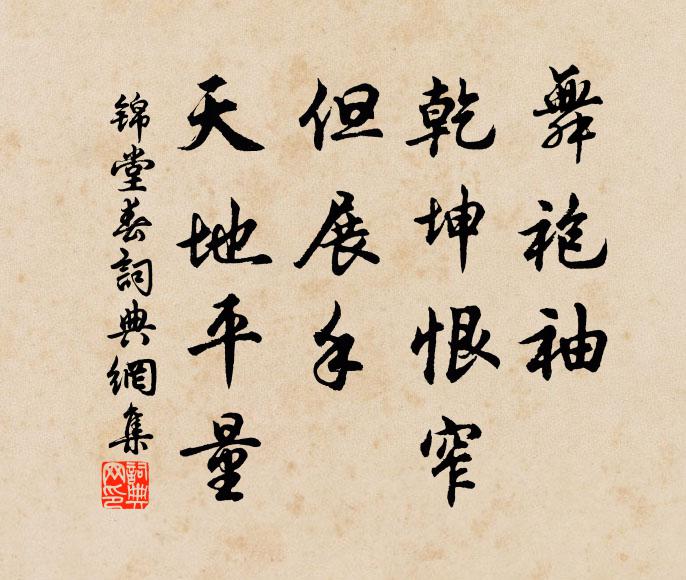 舞袍袖
乾坤恨窄
但展手
天地平量
锦堂春詞典網集
詞典网印